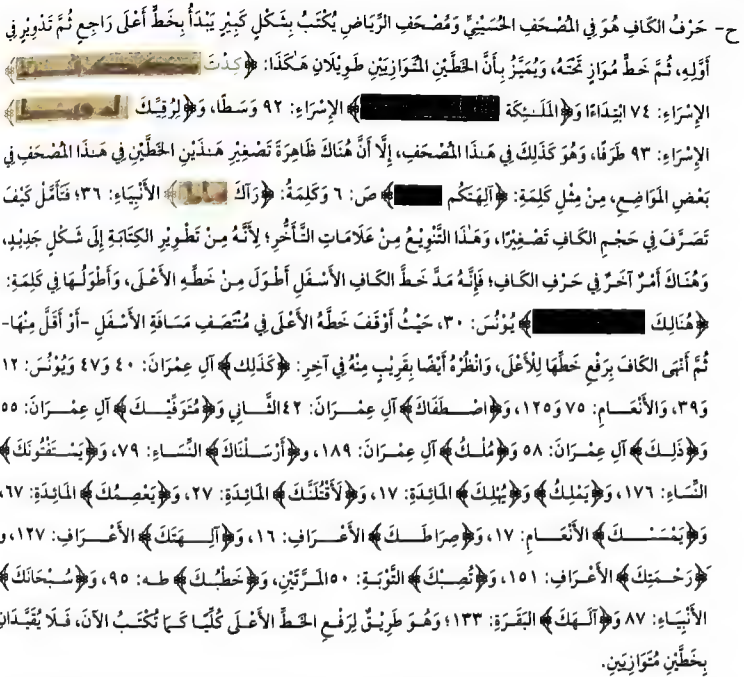 ح- حَرْفُ الكَافِ هُوَ فِي المُصْحَفِ الحُسَيْنِيِّ وَمُصْحَفِ الرِّيَاضِ يُكْتَبُ بِشَكْلٍ كَبِيْرٍ يَبْدَأُ بِخَطٍّ أَعْلَى رَاجِعٍ ثُمَّ تَدْوِيْرٍ فِي
أَوَّلِهِ، ثُمَّ خَطٍّ مُوَازٍ تَحْتَهُ، وَيُمَيَّزُ بِأَنَّ الخَطَّيْنِ المُتَوَازِيَيْنِ طَوِيْلَانِ هَكَذَا: ﴿كِدْتَ ﴾
الإِسْرَاءِ: ٧٤ ابْتِدَاءًا وَ﴿المَلَـٰئِكَة ﴾ الإِسْرَاءِ: ٩٢ وَسَطًا، وَ﴿لِرُقِيِّكَ ﴾
الإِسْرَاءِ: ٩٣ طَرَفًا، وَهُوَ كَذَلِكَ فِي هَـٰذَا المُصْحَفِ، إِلَّا أَنَّ هُنَاكَ ظَاهِرَةَ تَصْغِيْرِ هَـٰذَيْنِ الخَطَّيْنِ فِي هَـٰذَا المُصْحَفِ فِي
بَعْضِ المَوَاضِعِ، مِنْ مِثْلِ كَلِمَةِ: ﴿آلِهَتَكُم ﴾ ص: ٦ وَكَلِمَةُ: ﴿رَآكَ ﴾ الأَنْبِيَاءِ: ٣٦؛ فَتَأَمَّلْ كَيْفَ
تَصَرَّفَ فِي حَجْمِ الكَافِ تَصْغِيْرًا، وَهَـٰذَا التَّنْوِيْعُ مِنْ عَلَامَاتِ التَّأَخُّرِ؛ لِأَنَّهُ مِنْ تَطْوِيْرِ الكِتَابَةِ إِلَى شَكْلٍ جَدِيْدٍ،
وَهُنَاكَ أَمْرٌ آخَرُ فِي حَرْفِ الكَافِ؛ فَإِنَّهُ مَدَّ خَطَّ الكَافِ الأَسْفَلِ أَطْوَلَ مِنْ خَطِّهِ الأَعْلَى، وَأَطْوَلُـهَا فِي كَلِمَةِ:
﴿هُنَالِكَ ﴾ يُوْنُسَ: ٣٠، حَيْثُ أَوْقَفَ خَطَّهُ الأَعْلَى فِي مُنْتَصَفِ مَسَافَةِ الأَسْفَلِ -أَوْ أَقَلَّ مِنْهَا-
ثُمَّ أَنْهَى الكَافَ بِرَفْعِ خَطِّهَا لِلْأَعْلَى، وَانْظُرْهُ أَيْضًا بِقَرِيْبٍ مِنْهُ فِي آخِرِ: ﴿كَذَلِك﴾ آلِ عِمْرَانَ: ٤٠ وَ٤٧ وَيُوْنُسَ: ١٢
وَ٣٩، وَالأَنْعَـــامِ: ٧٥ وَ١٢٥، وَ﴿اصْـــطَفَاكَ﴾ آلِ عِمْـــرَانَ: ٤٢ الثَّـــانِي وَ﴿مُتَوَفِّيْـــكَ﴾ آلِ عِمْـــرَانَ: ٥٥
وَ﴿ذَلِـكَ﴾ آلِ عِمْـرَانَ: ٥٨ وَ﴿مُلْـكُ﴾ آلِ عِمْـرَانَ: ١٨٩، وَ﴿أَرْسَـلْنَاكَ﴾ النِّسَـاءِ: ٧٩، وَ﴿يَسْـتَفْتُونَكَ﴾
النِّسَاءِ: ١٧٦، وَ﴿يَمْلِكُ﴾ وَ﴿يُهْلِكَ﴾ المَائِدَةِ: ١٧، وَ﴿لَأَقْتُلَنَّكَ﴾ المَائِدَةِ: ٢٧، وَ﴿يَعْصِمُكَ﴾ المَائِدَةِ: ٦٧،
وَ﴿يَمْسَسْـــكَ﴾ الأَنْعَـــامِ: ١٧، وَ﴿صِرَاطَـــكَ﴾ الأَعْـــرَافِ: ١٦، وَ﴿آلِـــهَتَكَ﴾ الأَعْـــرَافِ: ١٢٧، و
﴿رَحْـمَتِكَ﴾ الأَعْـرَافِ: ١٥١، وَ﴿تُصِبْـكَ﴾ التَّوْبَـةِ: ٥٠ المَـرَّتَيْنِ، وَ﴿خَطْبُـكَ﴾ طـه: ٩٥، وَ﴿سُـبْحَانَكَ﴾
الأَنْبِيَاءِ: ٨٧ وَ﴿آلَـهَكَ﴾ البَقَـرَةِ: ١٣٣؛ وَهُـوَ طَرِيْـقٌ لِرَفْـعِ الخَـطِّ الأَعْـلَى كُلِّيًّـا كَـمَا تُكْتَـبُ الآنَ، فَـلَا يُقَيَّـدَانِ
بِخَطَّيْنِ مُتَوَازِيَيْنِ.